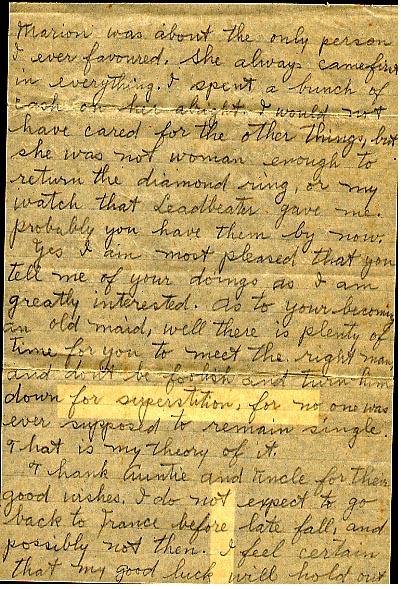 Marion was about the only person
I ever favoured. She always came first
in everything. I spent a bunch of
cash on her alright. I would not
have cared for the other things, but
she was not woman enough to
return the diamond ring, or my
watch that Leadbeater gave me.
probably you have them by now.
Yes I am most pleased that you
tell me of your doings as I am
greatly interested. As to your becoming
an old maid, well there is plenty of
time for you to meet the right man
and don't be foolish and turn him
down for superstition, for no one was
ever supposed to remain single.
That is my theory of it.
Thank Auntie and Uncle for their
good wishes. I do not expect to go
back to France before late fall, and
possibly not then. I feel certain
that my good luck will hold out